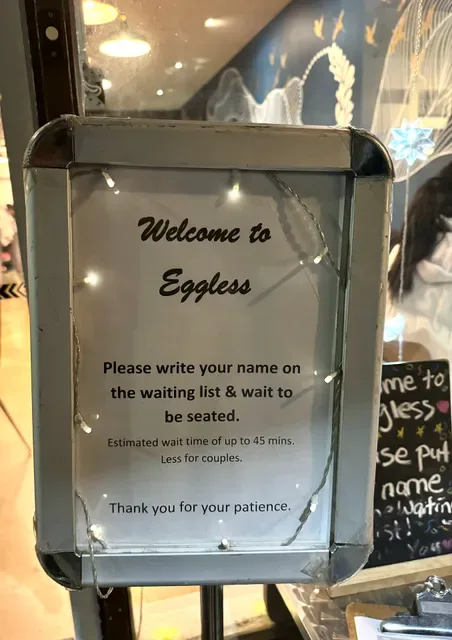 Welcome to
Eggless
Please write your name on
the waiting list & wait to
be seated.
Estimated wait time of up to 45 mins.
Less for couples.
Thank you for your patience.
me to
gless
se put
name
waitin
st!
You